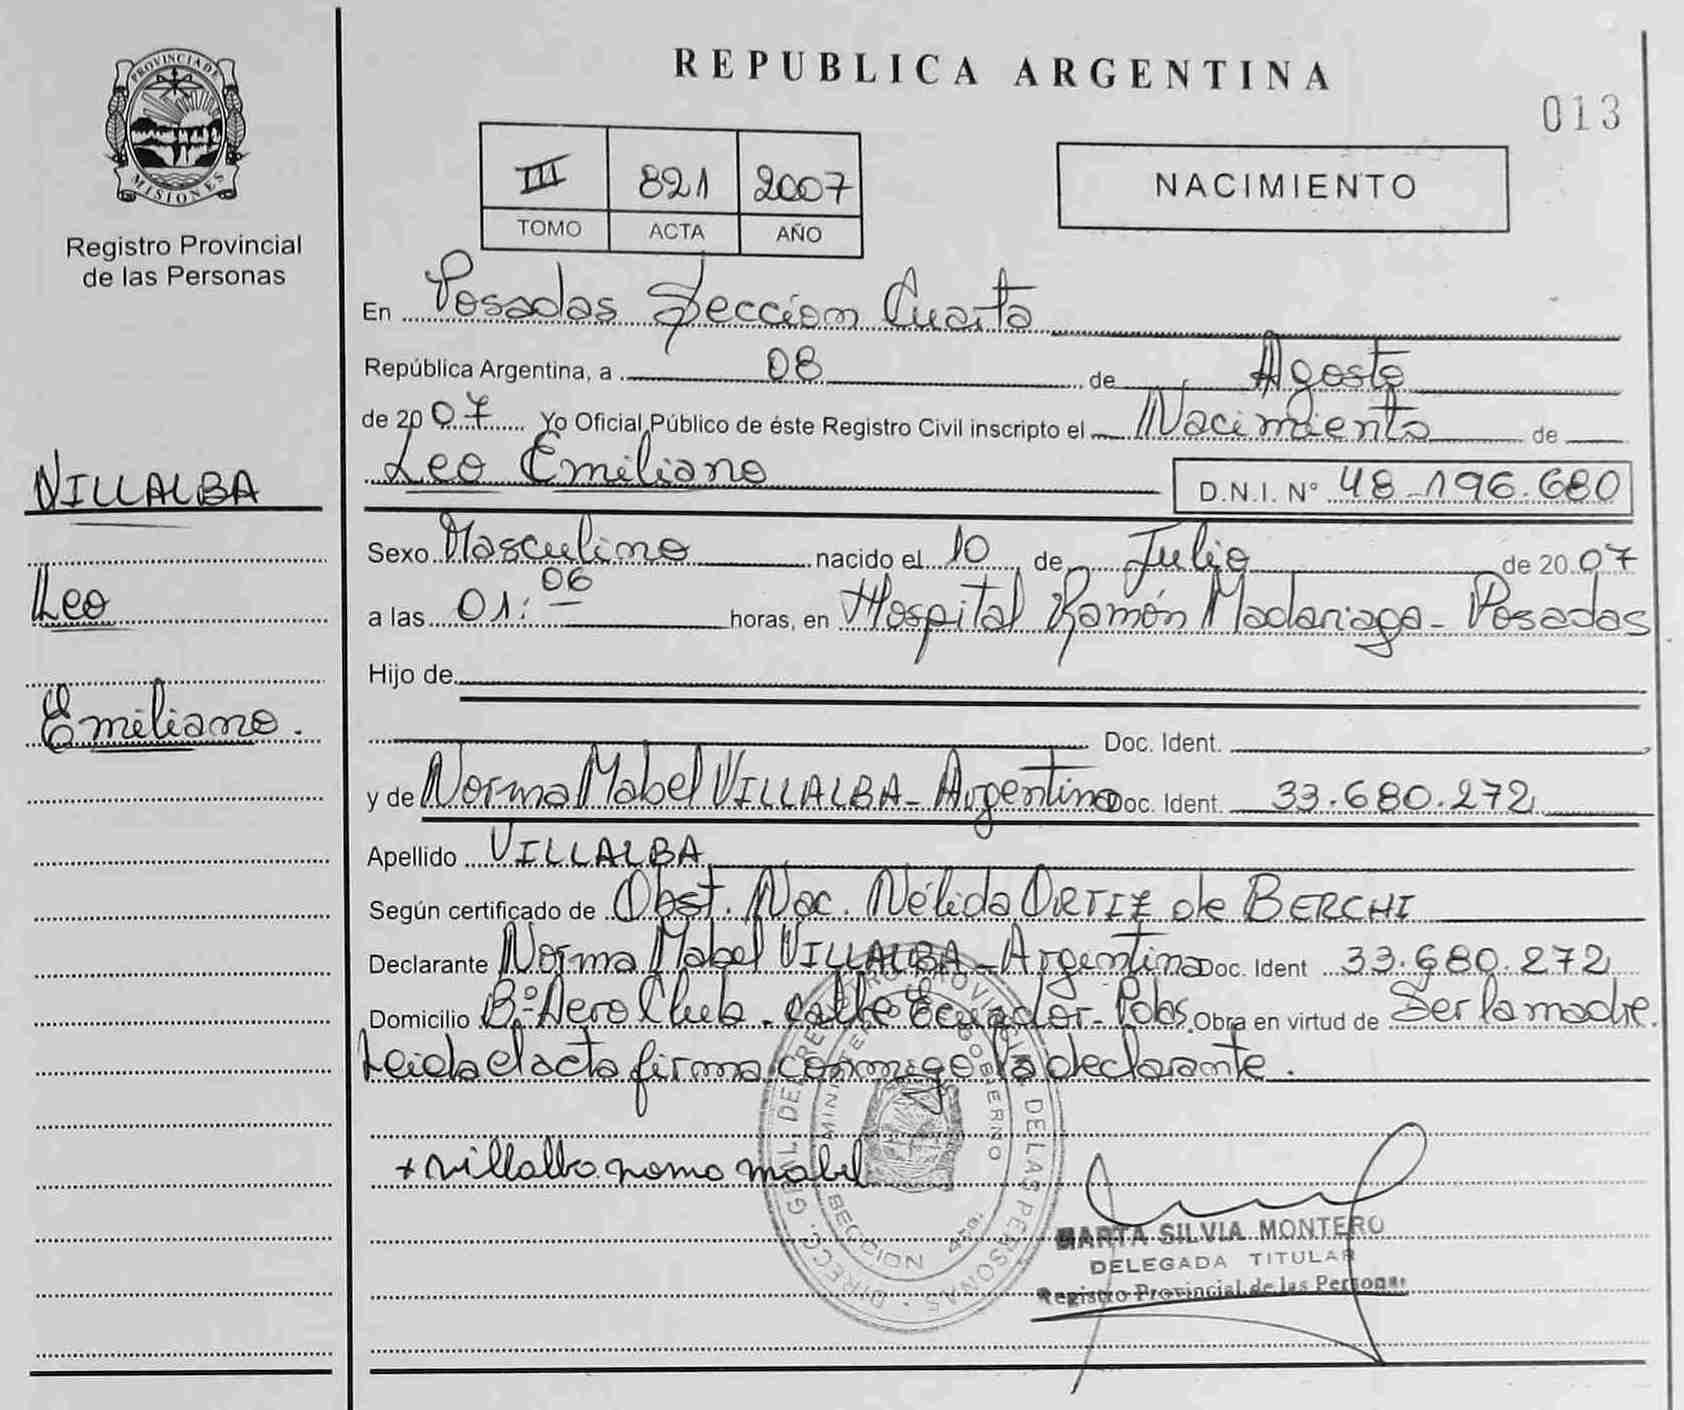 PROVINCIA DE
MISIONES
Registro Provincial
de las Personas
VILLALBA
Leo
Emiliano.
REPUBLICA ARGENTINA
013
III 821 2007
TOMO ACTA AÑO
NACIMIENTO
En Posadas Sección Cuarta
República Argentina, a 08 de Agosto
de 2007 Yo Oficial Público de éste Registro Civil inscripto el Nacimiento de
Leo Emiliano D.N.I. N° 48-196.680
Sexo Masculino nacido el 10 de Julio de 2007
a las 01:06 horas, en Hospital Ramón Madariaga - Posadas
Hijo de
Doc. Ident.
y de Norma Mabel VILLALBA - Argentina Doc. Ident. 33.680.272
Apellido VILLALBA
Según certificado de Obst. Nac. Nélida ORTIZ de BERCHI
Declarante Norma Mabel VILLALBA - Argentina Doc. Ident 33.680.272
Domicilio B° Aero Club - calle Ecuador - Pdas. Obra en virtud de Ser la madre.
Leida el acta firma conmigo la declarante.
+ villalba norma mabel
DIRECC. GRAL. DEL REGISTRO PROVINCIAL DE LAS PERSONAS
MINISTERIO GOBIERNO
SECCION 4ta.
MARTA SILVIA MONTERO
DELEGADA TITULAR
Registro Provincial de las Personas